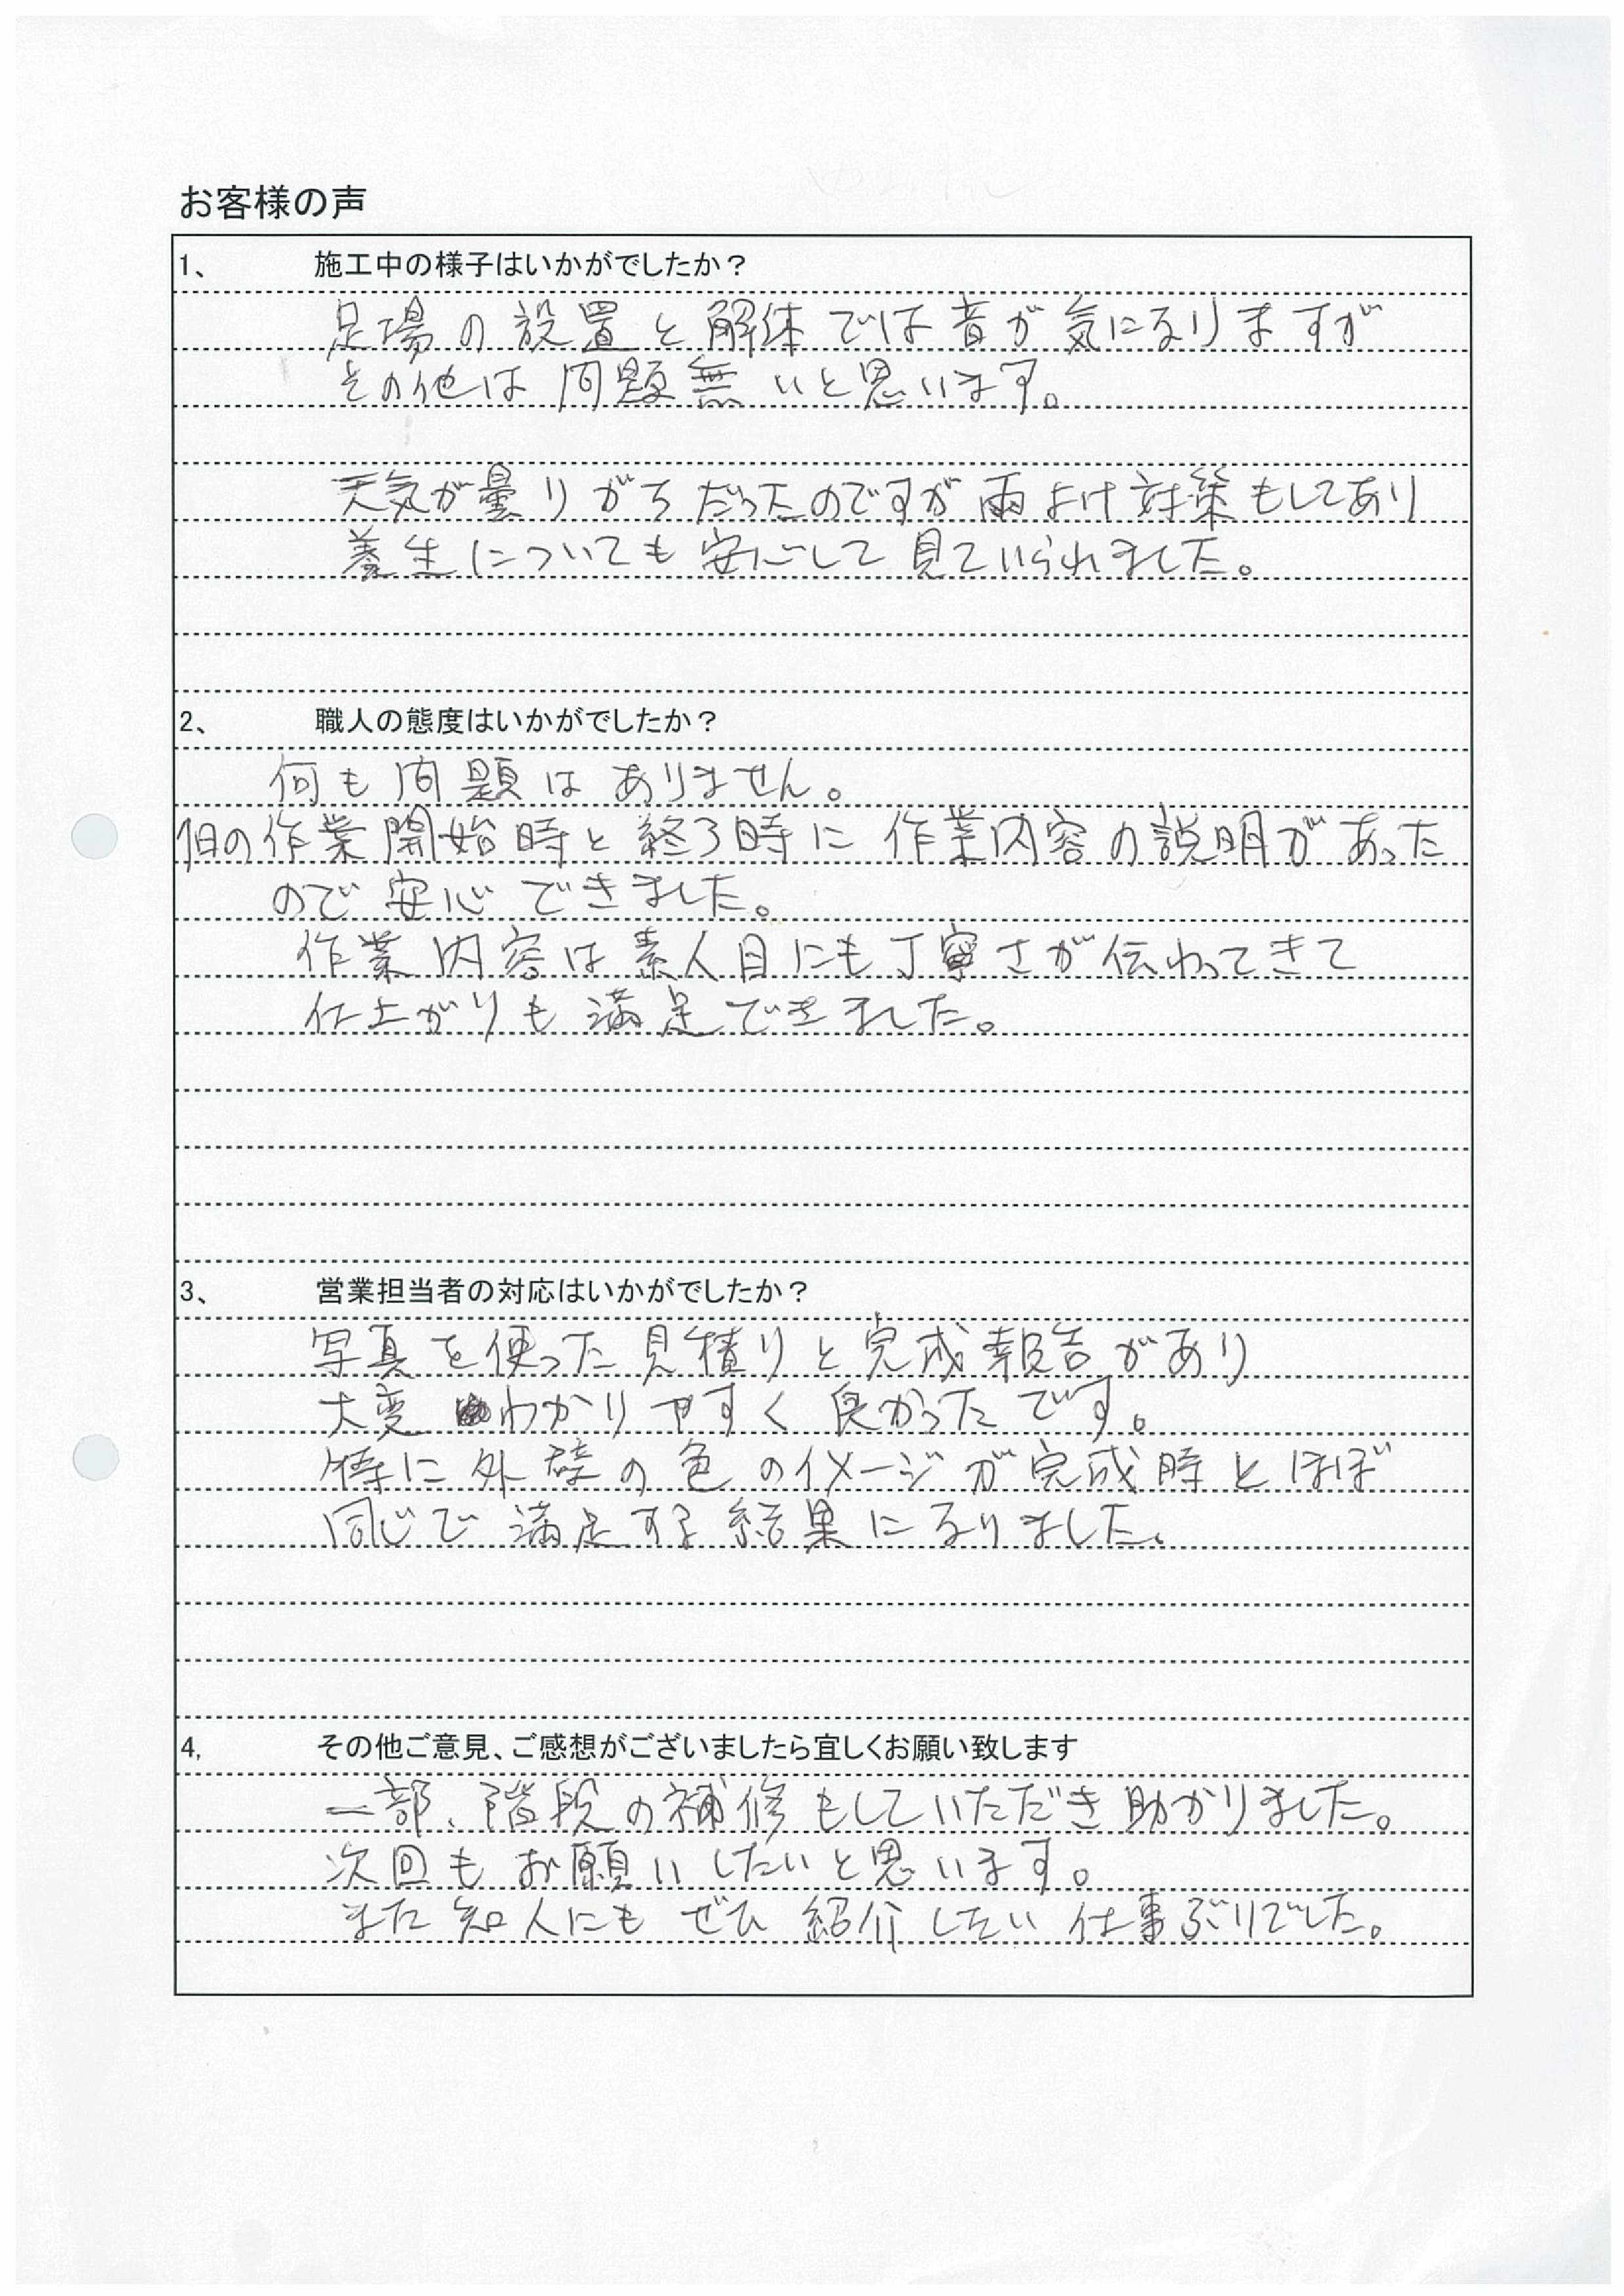 お客様の声
1、 施工中の様子はいかがでしたか？
足場の設置と解体では音が気になりますが
その他は問題無いと思います。
天気が曇りがちだったのですが雨よけ対策もしてあり
養生についても安心して見ていられました。
2、 職人の態度はいかがでしたか？
何も問題はありません。
1日の作業開始時と終了時に作業内容の説明があった
ので安心できました。
作業内容は素人目にも丁寧さが伝わってきて
仕上がりも満足できました。
3、 営業担当者の対応はいかがでしたか？
写真を使った見積りと完成報告があり
大変わかりやすく良かったです。
特に外壁の色のイメージが完成時とほぼ
同じで満足する結果になりました。
4, その他ご意見、ご感想がございましたら宜しくお願い致します
一部、階段の補修もしていただき助かりました。
次回もお願いしたいと思います。
また知人にもぜひ紹介したい仕事ぶりでした。